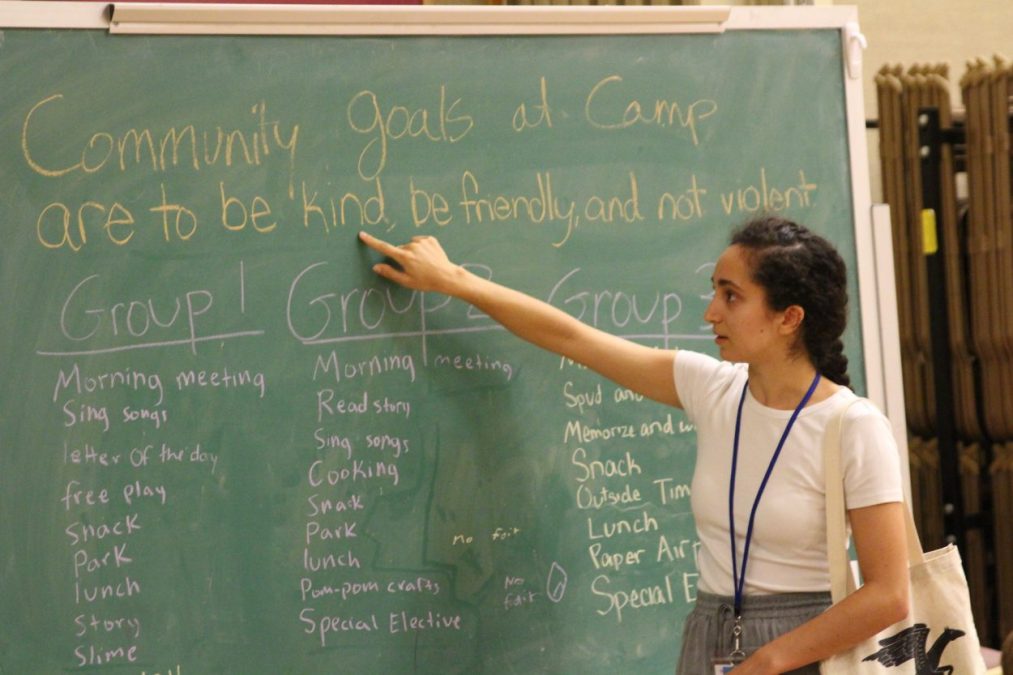 Community goals at Camp
are to be kind, be friendly, and not violent
Group 1
Morning meeting
Sing songs
letter of the day
free play
Snack
Park
lunch
Story
Slime
Group 2
Morning meeting
Read story
Sing songs
Cooking
Snack
Park
lunch
Pom-pom crafts
Special Elective
no fair
No
fair
Group
Spud
Memorize and
Snack
Outside
Lunch
Paper
Special